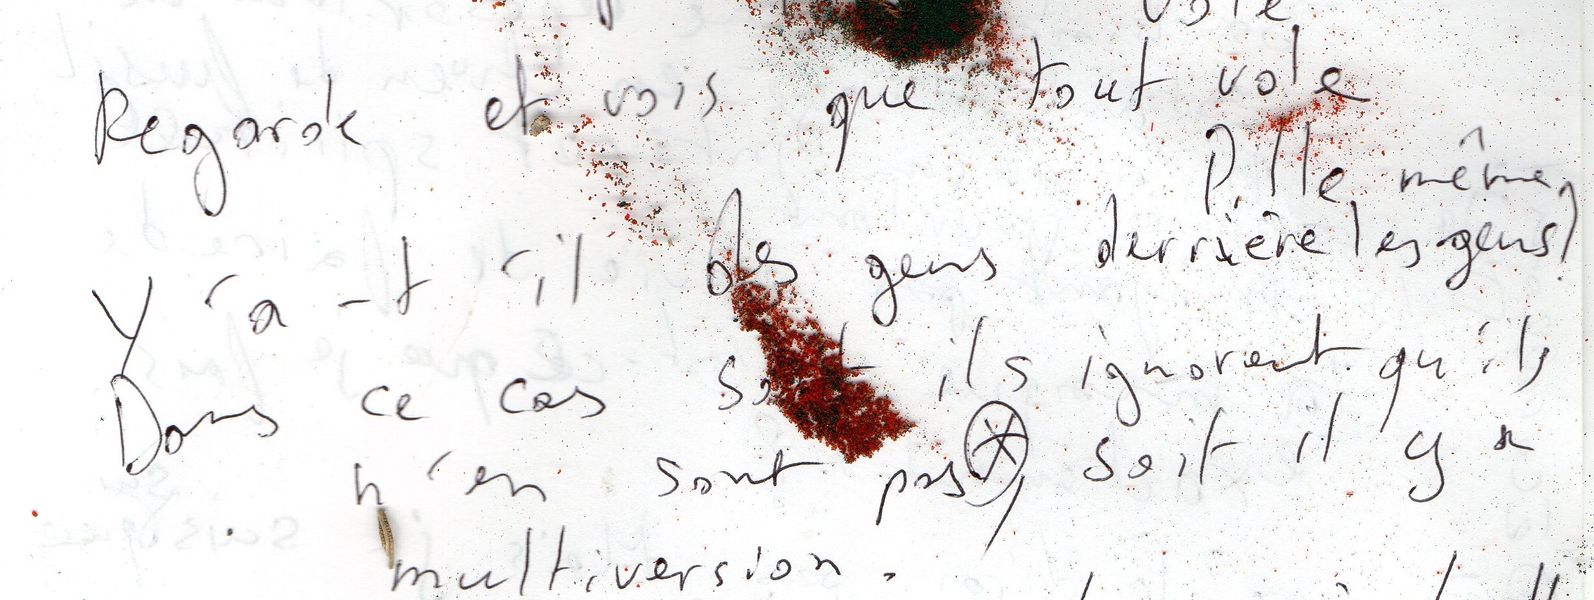 vole
Regarde et vois que tout vole
Pille même
Y'a-t'il des gens derrière les gens?
Dans ce cas soit ils ignorent qu'ils
n'en sont pas*, soit il y a
multiversion.